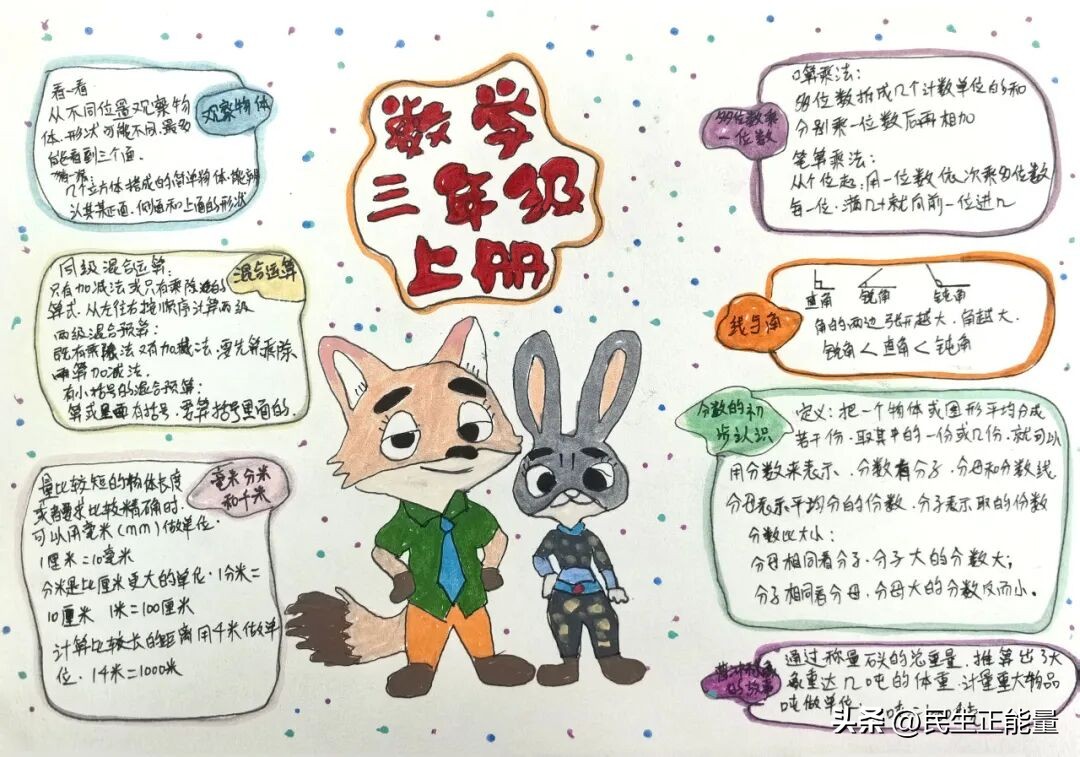 数学
三年级
上册
观察物体
看一看
从不同位置观察物
体,形状可能不同,最多
能看到三个面。
几个立方体搭成的简单物体,能辨
认其某正面、侧面和上面的形状
混合运算
同级混合运算:
只有加减法或只有乘除法的
算式,从左往右按顺序计算两级
两级混合预算:
既有乘除法又有加减法,要先算乘除
再算加减法.
有小括号的混合预算:
算式里面有括号,要算括号里面的.
毫米分米
和千米
量比较短的物体长度
或者要求比较精确时.
可以用毫米(mm)做单位.
1厘米=10毫米
分米是比厘米更大的单位.1分米=
10厘米 1米=100厘米
计算比较长的距离用千米做单
位.1千米=1000米
多位数乘
一位数
口算乘法:
多位数拆成几个计数单位的和
分别乘一位数后再相加
笔算乘法:
从个位起,用一位数依次乘多位数
每一位,满几十就向前一位进几
线与角
直角 锐角 钝角
角的两边张开越大,角越大.
锐角<直角<钝角
分数的初
步认识
定义:把一个物体或图形平均分成
若干份,取其中的一份或几份,就可以
用分数来表示、分数有分子,分母和分数线
分母表示平均分的份数,分子表示取的份数
分数比大小:
分母相同看分子,分子大的分数大;
分子相同看分母,分母大的分数反而小.
曹冲称象
的故事
通过称量石头的总重量,推算出了大
象重达几吨的体重,计量重大物品
吨做单位:
头条 @民生正能量